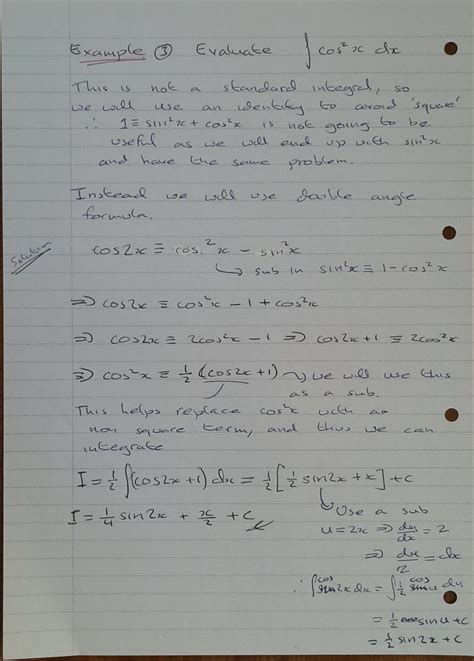 Example ③ Evaluate ∫cos²x dx
This is not a standard integral, so
we will use an identity to avoid 'square'
∴ 1 ≡ sin²x + cos²x is not going to be
useful as we will end up with sin²x
and have the same problem.
Instead we will use double angle
formula.
Solution
cos2x ≡ cos²x - sin²x
↳ sub in sin²x ≡ 1 - cos²x
⇒ cos2x ≡ cos²x - 1 + cos²x
⇒ cos2x ≡ 2cos²x - 1 ⇒ cos2x + 1 ≡ 2cos²x
⇒ cos²x ≡ ½(cos2x + 1) ↝ we will use this
as a sub.
This helps replace cos²x with an
non square term, and thus we can
integrate
I = ½∫(cos2x + 1) dx = ½[½sin2x + x] + c
I = ¼sin2x + x/2 + c
↳ Use a sub
u = 2x ⇒ du/dx = 2
⇒ du/2 = dx
∴ ∫cos2x dx = ∫½ cos u du
= ½ sin u + c
= ½ sin2x + c